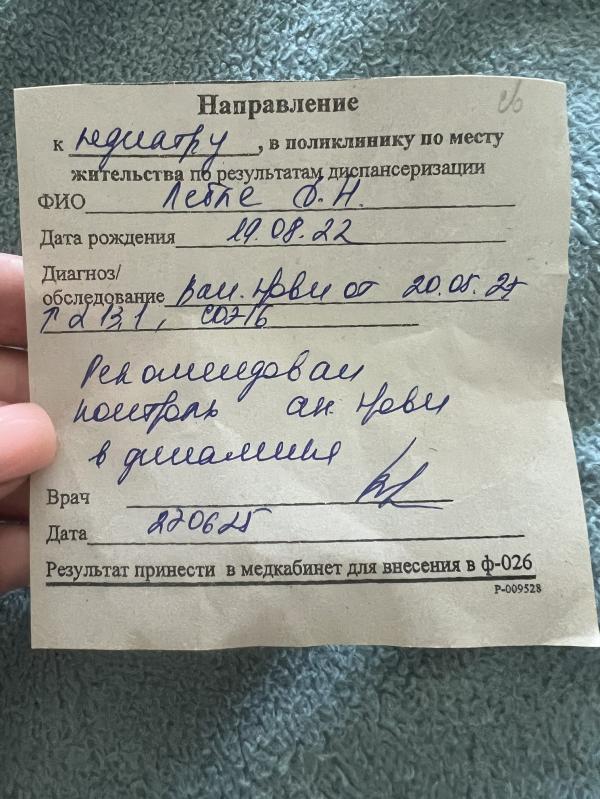 Направление
к педиатру, в поликлинику по месту
жительства по результатам диспансеризации
ФИО Н.
Дата рождения 19.08.22
Диагноз/
обследование крови от 20.05.25
↑ L 13,1, СОЭ 16
Рекомендован
контроль ан. крови
в динамике
Врач
Дата 270625
Результат принести в медкабинет для внесения в ф-026
Р-009528